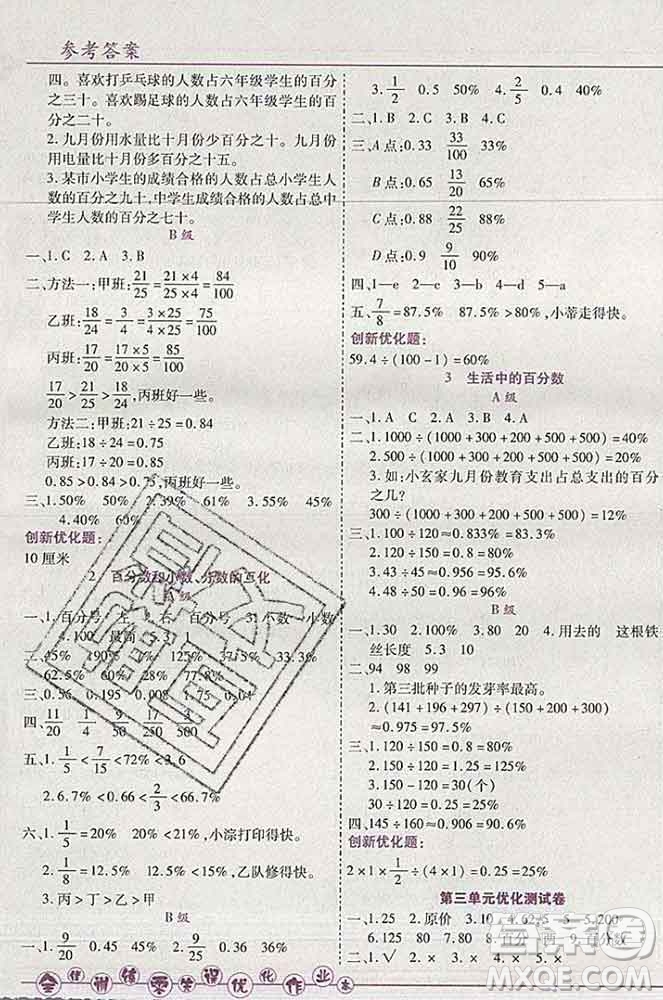 参考答案
四。喜欢打乒乓球的人数占六年级学生的百分
之三十。喜欢踢足球的人数占六年级学生的百
分之二十。
2. 九月份用水量比十月份少百分之十。九月份
用电量比十月份多百分之十五。
3. 某市小学生的成绩合格的人数占总小学生人
数的百分之八十,中学生成绩合格的人数占总中
学生人数的百分之七十。
B 级
一、1. C 2. A 3. B
二、方法一:甲班: 21/25 = (21×4)/(25×4) = 84/100
乙班: 18/24 = 3/4 = (3×25)/(4×25) = 75/100
丙班: 17/20 = (17×5)/(20×5) = 85/100
17/20 > 21/25 > 18/24, 丙班好一些。
方法二:甲班:21÷25=0.84
乙班:18÷24=0.75
丙班:17÷20=0.85
0.85>0.84>0.75,丙班好一些。
三、1. 50% 50% 2. 39% 61% 3. 55% 45%
4. 40% 60%
创新优化题:
10 厘米
2 百分数和小数、分数的互化
A 级
一、1. 百分号 左 2. 右 百分号 3. 小数 小数
4. 100
二、45% 190% 12.5% 37.5% 33.3%
62.5% 60% 28% 77.8%
三、0.56 0.195 0.008 1.75 0.04
四、11/20 1/4 9/50 17/250
五、1. 1/5 < 7/15 < 1.2%
2. 6.7% < 0.66 < 2/3 <
六、1. 1/5 = 20% 20% < 21% 小淙打印得快。
2. 1/8 = 12.5% 12.5% < 15%,乙队修得快。
3. 丙>丁>乙>甲
B 级
一、1. 9/20 0.45 45% 2. 9/25 0.36 36%
3. 1/2 0.5 50% 4. 2/5 0.4 40%
二、1. B 2. C 3. A
三、A 点:0.33 33/100 33%
B 点:0.65 13/20 65%
C 点:0.88 22/25 88%
D 点:0.9 9/10 90%
四、1—e 2—c 3—b 4—d 5—a
五、7/8 = 87.5% 87.5% > 80%,小蒂走得快。
创新优化题:
59.4÷(100-1)=60%
3 生活中的百分数
A 级
一、1. A C 2. B 3. B 4. A
二、1. 1000÷(1000+300+200+500+500)=40%
2. 500÷(1000+300+200+500+500)=20%
3. 如:小玄家九月份教育支出占总支出的百分
之几?
300÷(1000+300+200+500+500)=12%
三、1. 100÷120≈0.833=83.3%
2. 60÷150=0.4=40%
3. 36÷45=0.8=80%
4. 48÷50=0.96=96%
B 级
一、1. 30 2. 100% 3. 40 4. 用去的 这根铁
丝长度 5. 3 10
二、94 98 99
1. 第三批种子的发芽率最高。
2. (141+196+297)÷(150+200+300)
≈0.975=97.5%
三、1. 120÷150=0.8=80%
2. 150-120=30(个)
30÷120=0.25=25%
四、145÷160≈0.906=90.6%
创新优化题:
2×1×1/2÷(4×1)=0.25=25%
第三单元优化测试卷
一、1. 25 2. 原价 3. 10 4. 62.5 5. 200
6. 125 80 7. 20 8. 百分 两 百分数
二、1. √ 2. ×
MXQE.COM